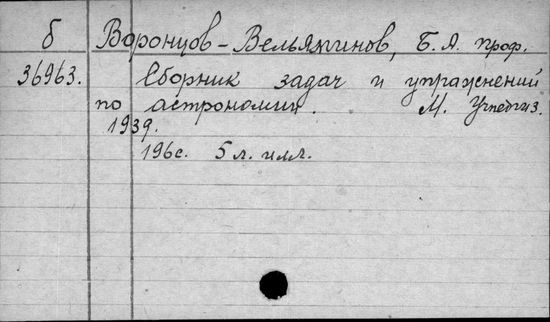 б Воронцов-Вельяминов, Б. А. проф.
36963. Сборник задач и упражнений
по астрономии. М. Учпедгиз.
1939.
196с. 5 л. илл.